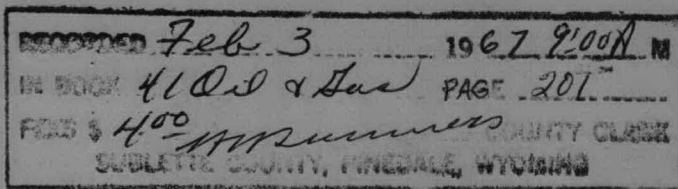 RECORDED Feb 3 1967 9:00A M
IN BOOK 41 Oil & Gas PAGE 201
FEES $ 4.00 COUNTY CLERK
SUBLETTE COUNTY, PINEDALE, WYOMING